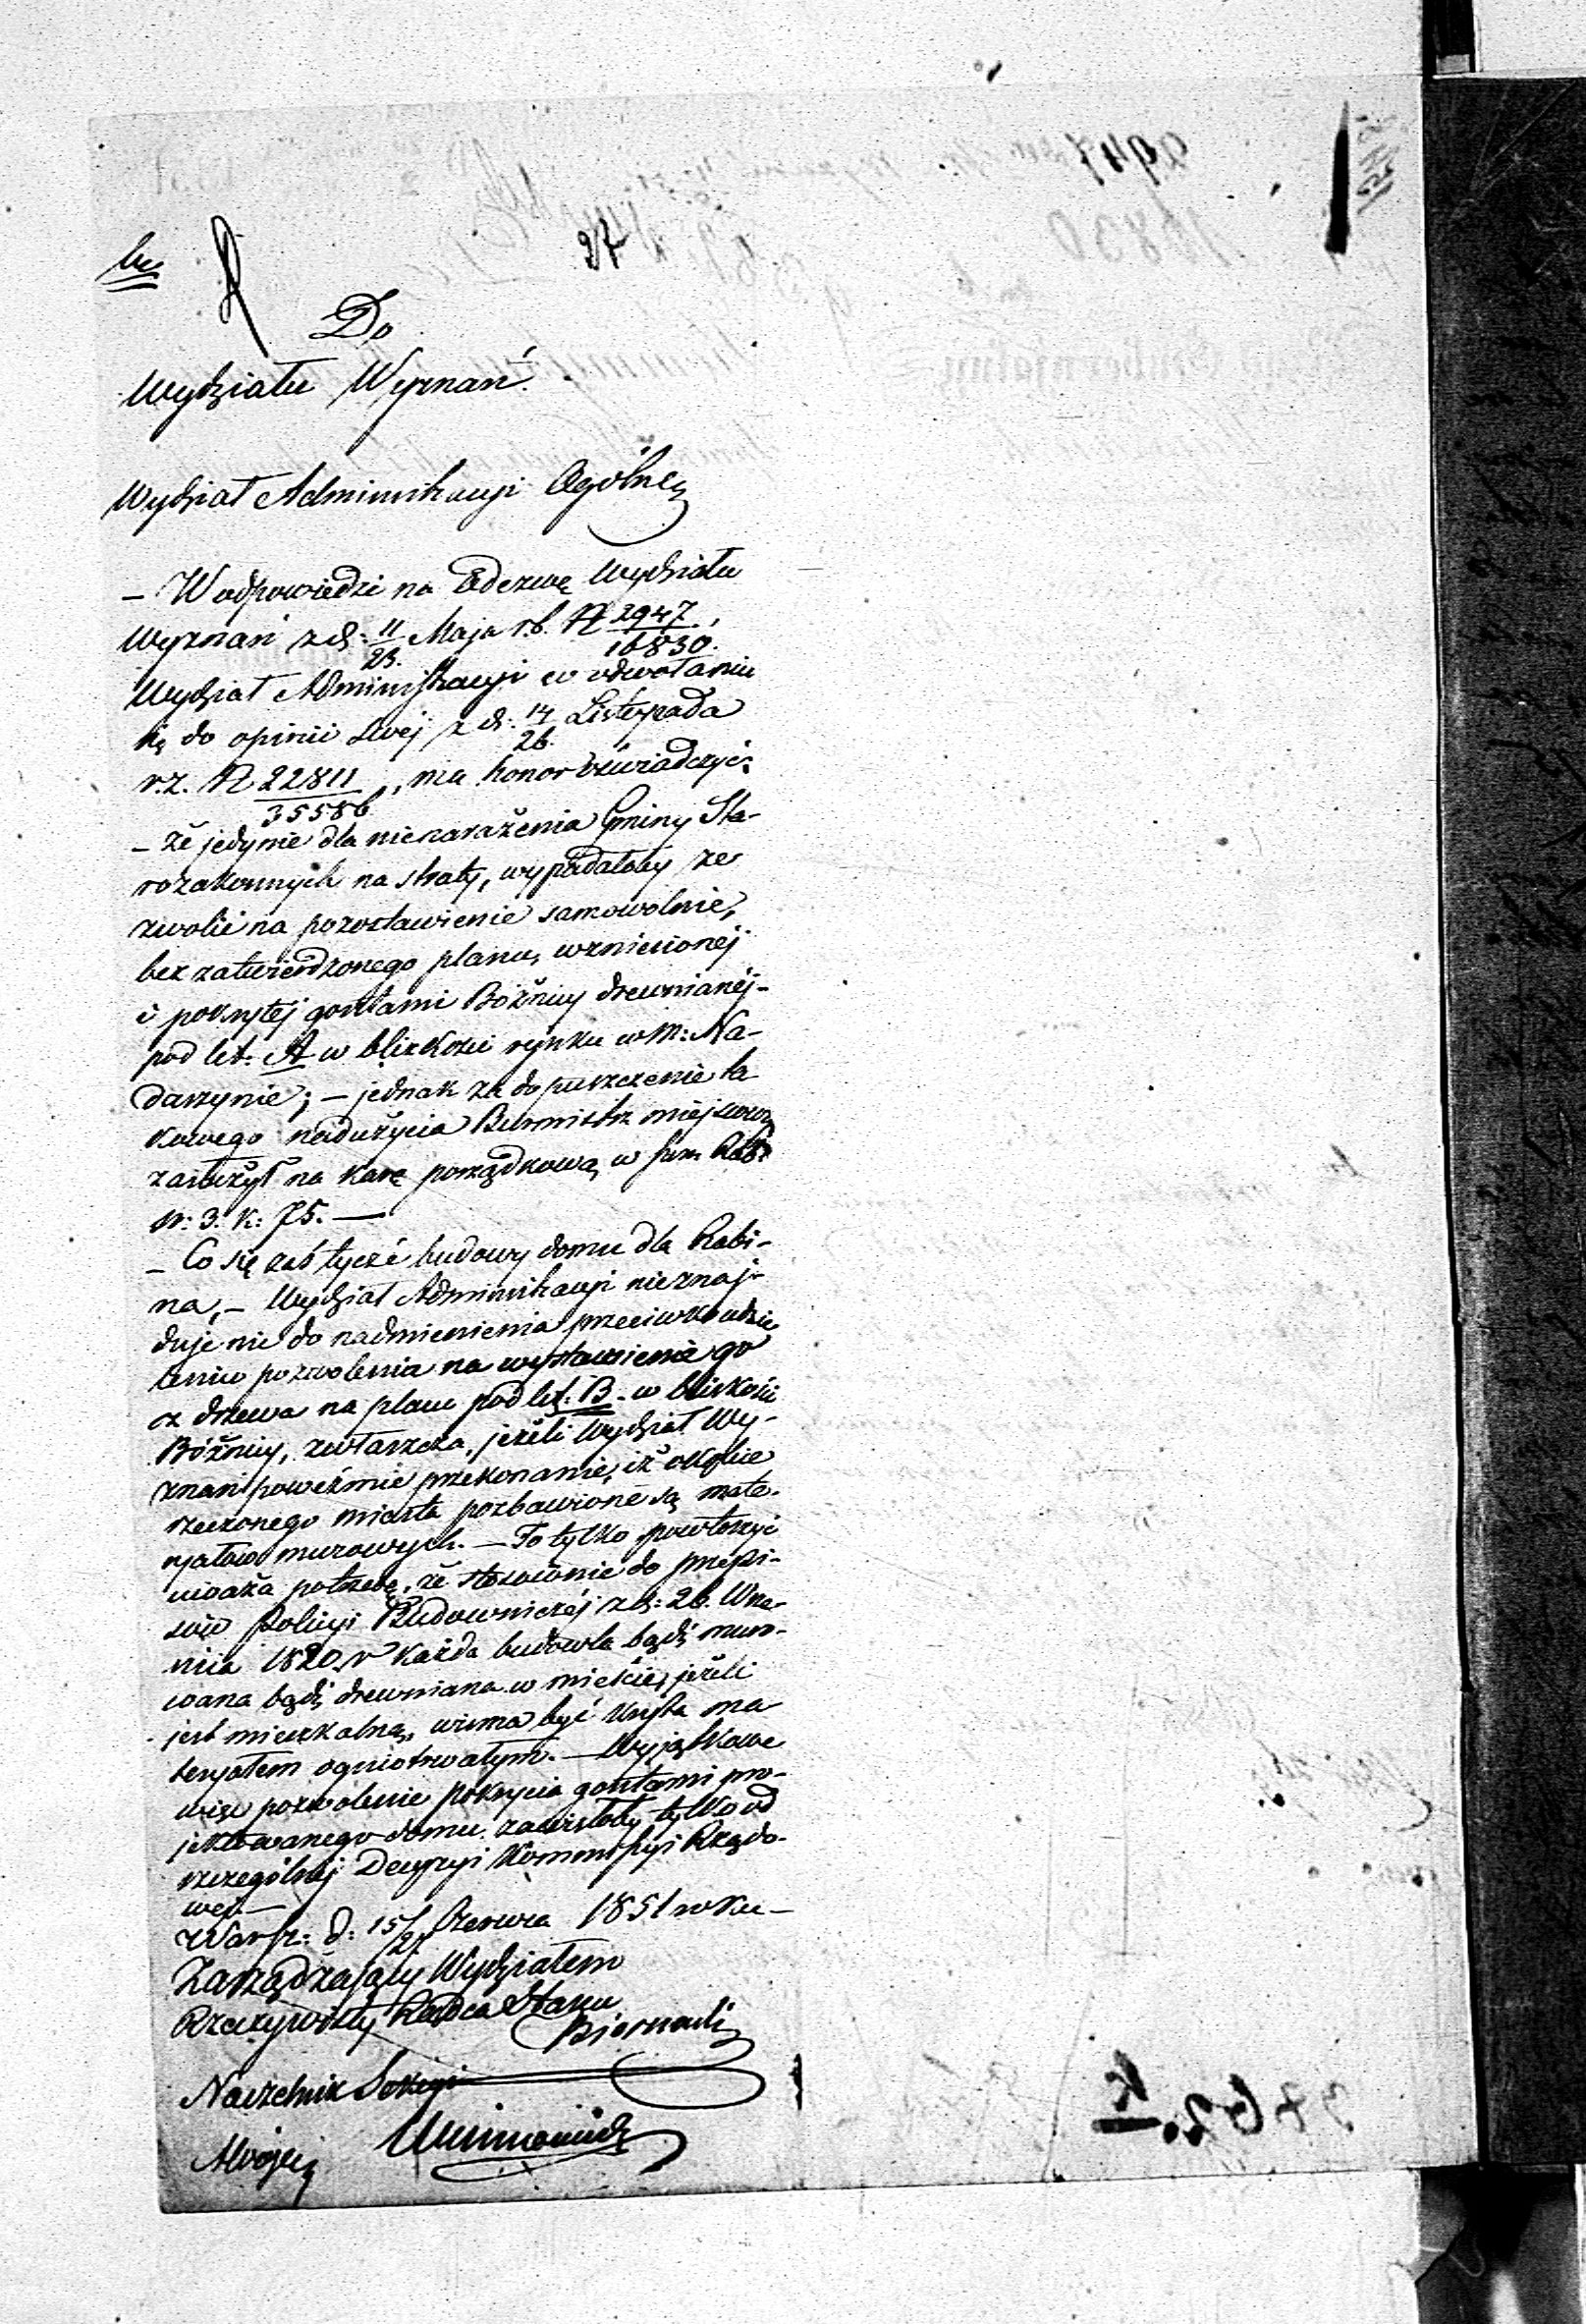 97
Do
Wydziału Wyznań.
Wydział Administracyi Ogólnej
– W odpowiedzi na Odezwę Wydziału
Wyznań z d: 11/23. Maja r.b. N 2947/16830.,
Wydział Administracyi w odwołaniu
się do opinii swej z d: 14/26. Listopada
r.z. N 22811/35586, ma honor oświadczyć:
– że jedynie dla nienarażenia Gminy Sta-
rozakonnych na straty, wypadałoby ze
zwolić na pozostawienie samowolnie,
bez zatwierdzonego planu, wzniesionej
i pokrytej gontami Bóżnicy drewnianej-
pod let: A w bliskości rynku w m: Na-
darzynie; – jednak za dopuszczenie ta
kowego nadużycia Burmistrz miejscowy
zasłużył na karę porządkową w
N: 3. k: 75. —
– Co się zaś tycze budowy domu dla Rabi-
na, – Wydział Administracyi nieznaj-
duje nic do nadmienienia przeciwko udzie
leniu pozwolenia na wystawienie go
z drzewa na placu pod let: B. w bliskości
Bóżnicy, zwłaszcza, jeżeli Wydział Wy-
znań poweźmie przekonanie, iż okolice
rzeczonego miasta pozbawione są mate-
ryałów murowych. – To tylko powtórzyć
uważa potrzebę, że stosownie do przepi-
sów Policyi Budowniczej z d: 26. Wrze-
śnia 1820 r każda budowla bądź muro-
wana bądź drewniana w mieście, jeżeli
jest mieszkalną, winna być kryta ma
teryałem ogniotrwałym. – Wyjątkowe
więc pozwolenie pokrycia gontami pro-
jektowanego domu zawisłoby tylko od
szczególnej Decyzyi Kommissyi Rządo-
wej. –
z Warsz: d: 15/27 Czerwca 1851 roku –
Zarządzający Wydziałem
Rzeczywisty Radca Stanu
Biernacki
Naczelnik Sekcyi